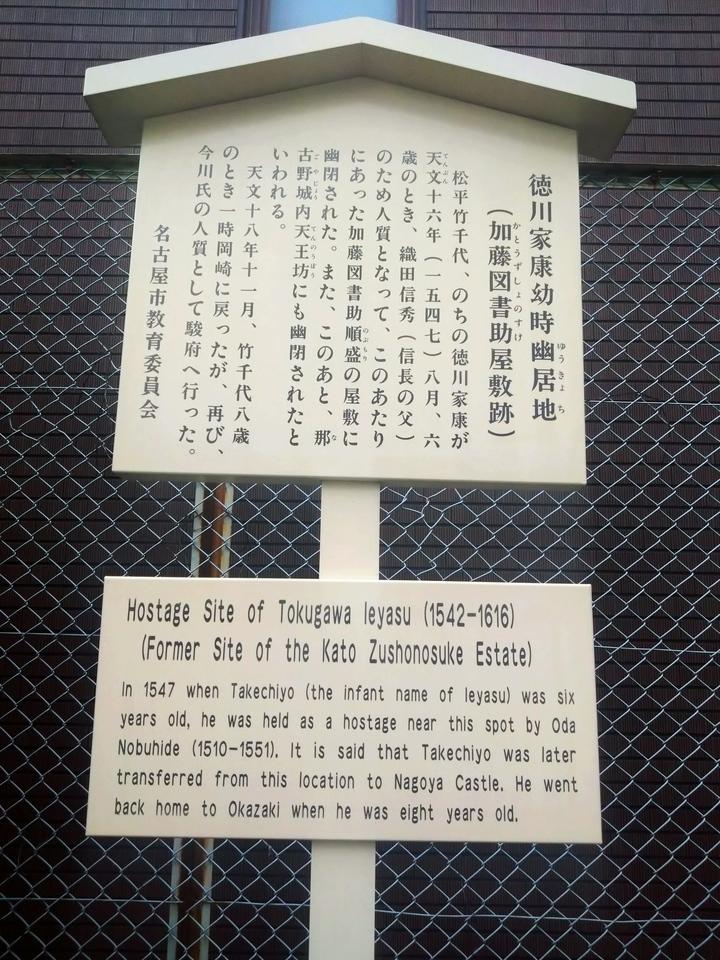 徳川家康幼時幽居地
(加藤図書助屋敷跡)
松平竹千代、のちの徳川家康が
天文十六年(一五四七)八月、六
歳のとき、織田信秀(信長の父)
のため人質となって、このあたり
にあった加藤図書助順盛の屋敷に
幽閉された。また、このあと、那
古野城内天王坊にも幽閉されたと
いわれる。
天文十八年十一月、竹千代八歳
のとき一時岡崎に戻ったが、再び、
今川氏の人質として駿府へ行った。
名古屋市教育委員会
Hostage Site of Tokugawa Ieyasu (1542-1616)
(Former Site of the Kato Zushonosuke Estate)
In 1547 when Takechiyo (the infant name of Ieyasu) was six
years old, he was held as a hostage near this spot by Oda
Nobuhide (1510-1551). It is said that Takechiyo was later
transferred from this location to Nagoya Castle. He went
back home to Okazaki when he was eight years old.